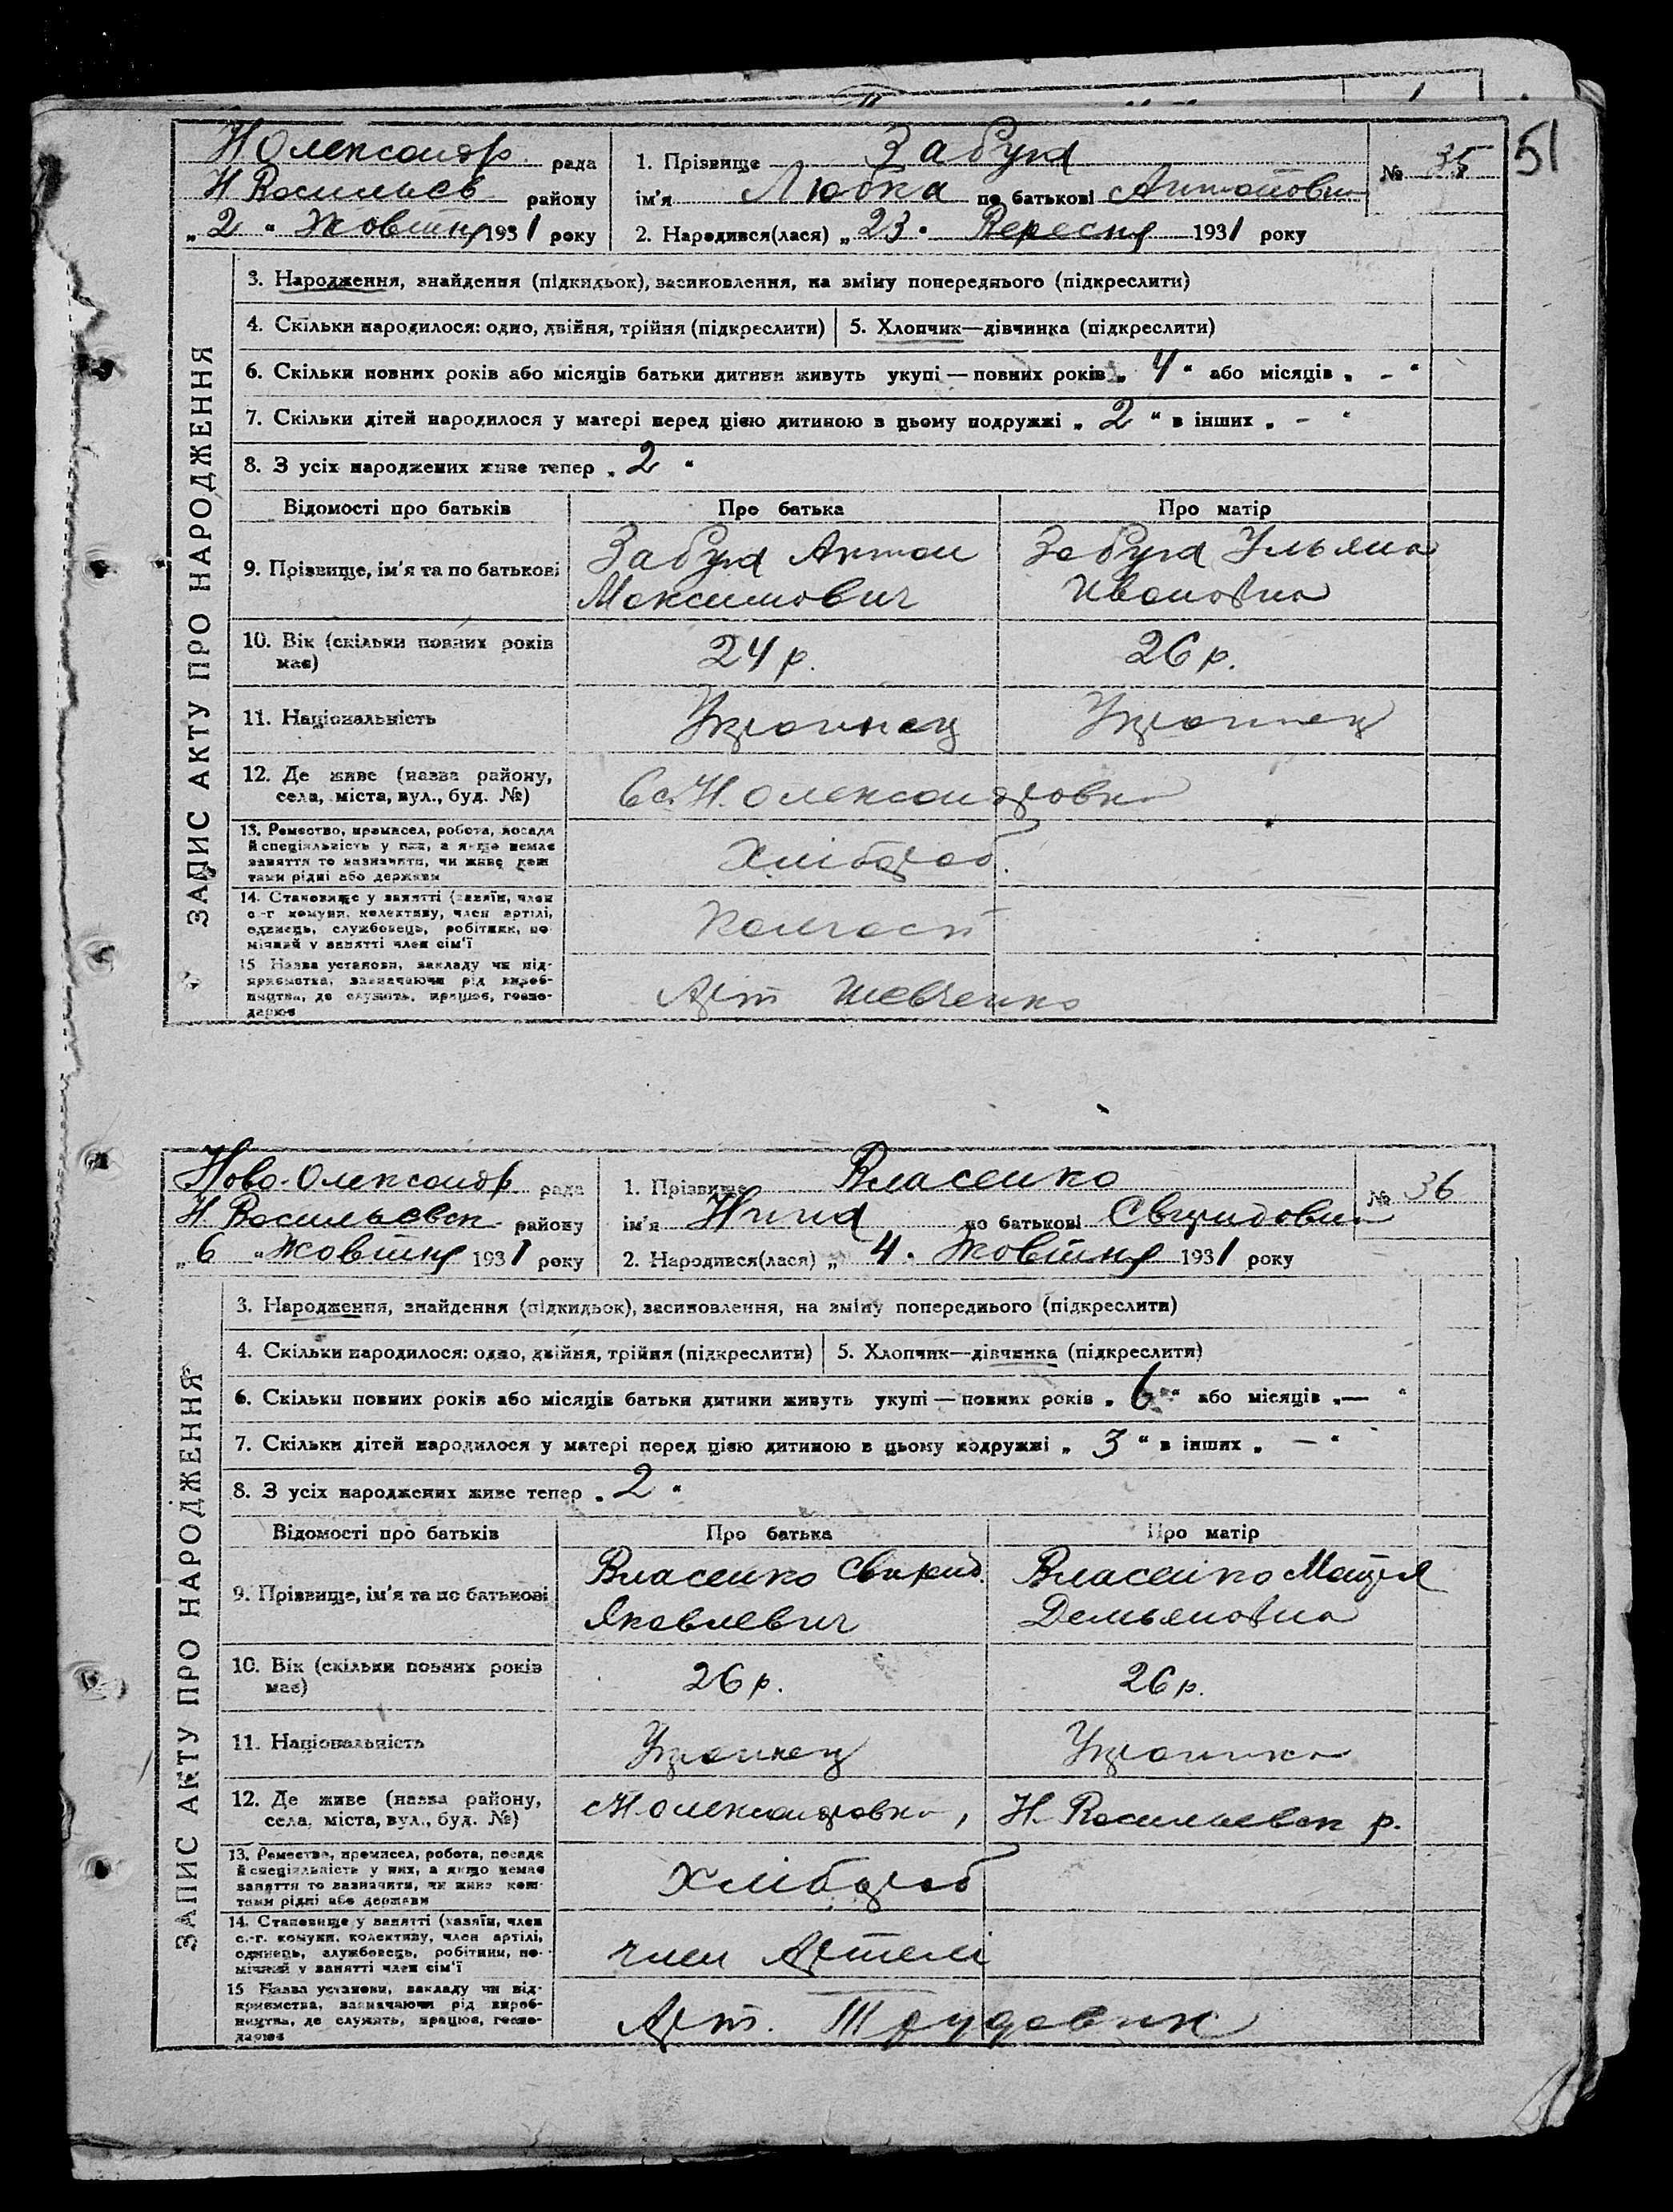 51
Н Олександр. рада
Н Васильєв району
„ 2 “ Жовтня 1931 року
1. Прізвище Забуга
ім'я Любка по батькові Антоновна
2. Народився(лася) „ 23 “ Вересня 1931 року
№ 35
ЗАПИС АКТУ ПРО НАРОДЖЕННЯ
3. Народження, знайдення (підкидьок), засиновлення, на зміну попереднього (підкреслити)
4. Скільки народилося: одно, двійня, трійня (підкреслити)
5. Хлопчик—дівчинка (підкреслити)
6. Скільки повних років або місяців батьки дитини живуть укупі — повних років „ 4 “ або місяців „ - “
7. Скільки дітей народилося у матері перед цією дитиною в цьому подружжі „ 2 “ в інших „ - “
8. З усіх народжених живе тепер „ 2 “
Відомості про батьків Про батька Про матір
9. Прізвище, ім'я та по батькові
Забуга Антон
Максимович
Забуга Ульяна
Ивановна
10. Вік (скільки повних років
має)
24 р. 26 р.
11. Національність Украинец Украинец
12. Де живе (назва району,
села, міста, вул., буд. №)
с. Н. Олександровка
13. Ремество, промисел, робота, посада
й спеціяльність у них, а якщо немає
заняття то зазначити, чи живе кош
тами рідні або держави
Хлібороб.
14. Становище у занятті (хазяїн, член
с.-г комуни, колективу, член артілі,
одинець, службовець, робітник, по
мічний у занятті член сім'ї
Колгосп
15 Назва установи, закладу чи під-
приємства, зазначаючи рід вироб-
ництва, де служить, працює, госпо-
дарює
Арт Шевченко
Ново-Олександр рада
Н. Васильевск району
„ 6 “ Жовтня 1931 року
1. Прізвище Власенко
ім'я Нина по батькові Свиридовна
2. Народився(лася) „ 4 “ Жовтня 1931 року
№ 36
ЗАПИС АКТУ ПРО НАРОДЖЕННЯ
3. Народження, знайдення (підкидьок), засиновлення, на зміну попереднього (підкреслити)
4. Скільки народилося: одно, двійня, трійня (підкреслити)
5. Хлопчик—дівчинка (підкреслити)
6. Скільки повних років або місяців батьки дитини живуть укупі — повних років „ 6 “ або місяців „ — “
7. Скільки дітей народилося у матері перед цією дитиною в цьому подружжі „ 3 “ в інших „ — “
8. З усіх народжених живе тепер „ 2 “
Відомості про батьків Про батька Про матір
9. Прізвище, ім'я та по батькові
Власенко Свирид.
Яковлевич
Власенко
Демьяновна
10. Вік (скільки повних років
має)
26 р. 26 р.
11. Національність Украинец Украинка
12. Де живе (назва району,
села, міста, вул., буд. №)
с Н Олександровка, Н. Васильевск р.
13. Ремество, промисел, робота, посада
й спеціяльність у них, а якщо немає
заняття то зазначити, чи живе кош-
тами рідні або держави
Хлібороб
14. Становище у занятті (хазяїн, член
с.-г. комуни, колективу, член артілі,
одинець, службовець, робітник, по-
мічний у занятті член сім'ї
член Артелі
15 Назва установи, закладу чи під-
приємства, зазначаючи рід вироб-
ництва, де служить, працює, госпо-
дарює
Арт. Трудовик